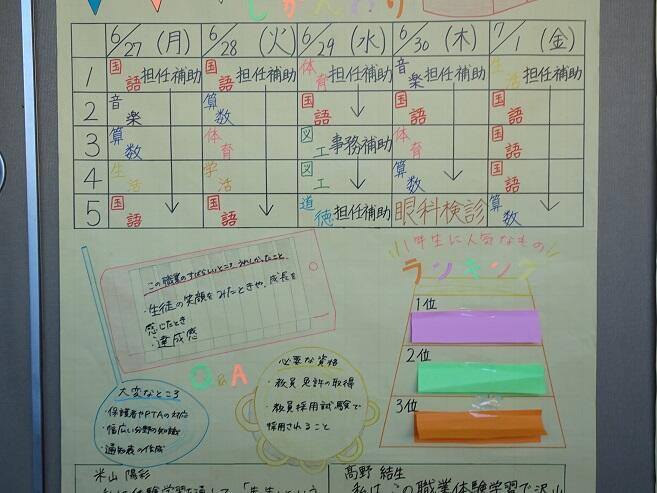 じかんわり
6/27 (月) 6/28 (火) 6/29 (水) 6/30 (木) 7/1 (金)
1 国語 担任補助 国語 担任補助 体育 担任補助 音楽 担任補助 生活 担任補助
2 音楽 算数 国語 国語 国語
3 算数 体育 図工 事務補助 体育 国語
4 生活 学活 図工 算数 国語
5 国語 国語 道徳 担任補助 眼科検診 算数
この職業のすばらしいところ、うれしかったこと
・生徒の笑顔をみたときや、成長を
感じたとき
・達成感
Q&A
大変なところ
・保護者やPTAの対応
・幅広い分野の知識
・通知表の作成
必要な資格
・教員免許の取得
・教員採用試験で
採用されること
1年生に人気なもの
ランキング
1位
2位
3位
米山 陽彩
高野 結生
私は、この職業体験学習で沢山